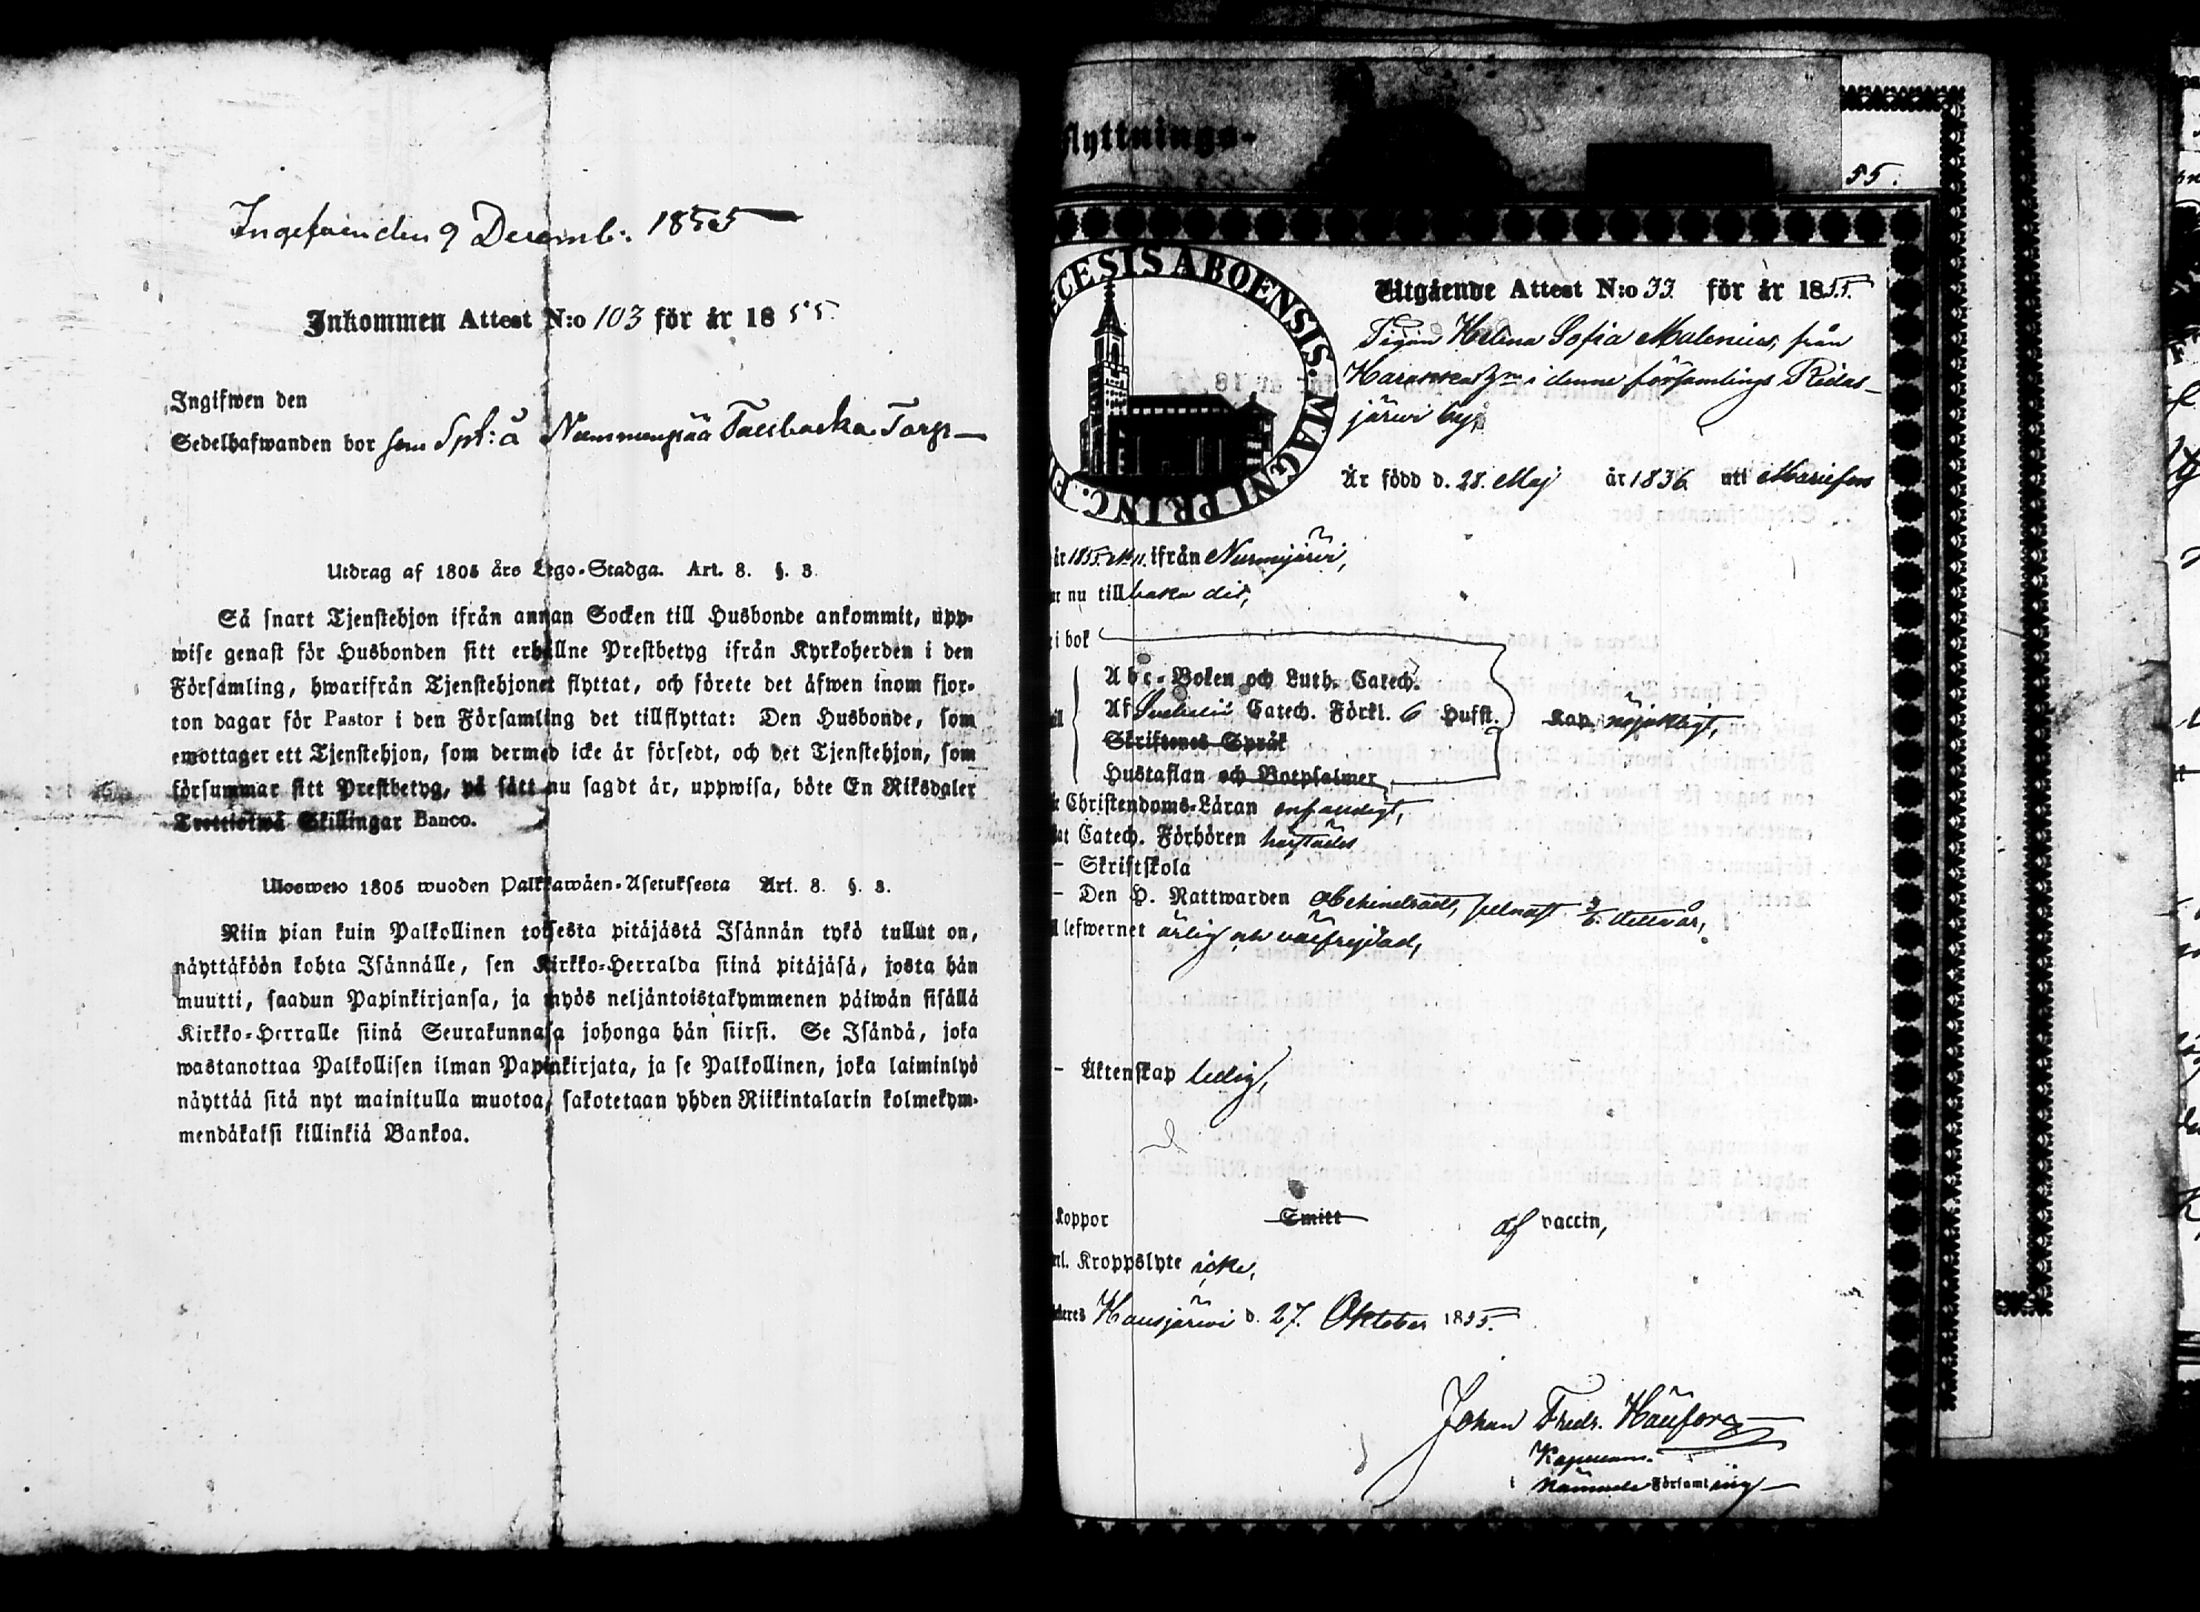 Ingifwen den 9 Decemb: 1855
Inkommen Attest N:o 103 för år 1855.
Ingifwen den
Sedelhafwanden bor som Spt: å Nummenpää Torp
Utdrag af 1805 års Lego-Stadga. Art. 8. §. 3.
Så snart Tjenstehjon ifrån annan Socken till Husbonde ankommit, upp-
wise genast för Husbonden sitt erhållne Prestbetyg ifrån Kyrkoherden i den
Församling, hwarifrån Tjenstehjonet flyttat, och förete det äfwen inom fjor-
ton dagar för Pastor i den Församling det tillflyttat: Den Husbonde, som
emottager ett Tjenstehjon, som dermed icke är försedt, och det Tjenstehjon, som
försummar sitt Prestbetyg, på sätt nu sagdt är, uppwisa, böte En Riksdaler
Trettiotwå Skillingar Banco.
Ulosweto 1805 wuoden Palkkawäen-Asetuksesta Art. 8. §. 3.
Niin pian kuin Palkollinen toisesta pitäjästä Isännän tykö tullut on,
näyttäköön kohta Isännälle, sen Kirkko-Herralda siinä pitäjäsä, josta hän
muutti, saadun Papinkirjansa, ja myös neljäntoistakymmenen päiwän sisällä
Kirkko-Herralle siinä Seurakunnasa johonga hän siirsi. Se Isändä, joka
wastanottaa Palkollisen ilman Papinkirjata, ja se Palkollinen, joka laiminlyö
näyttää sitä nyt mainitulla muotoa, sakotetaan yhden Riikintalarin kolmekym-
mendäkaksi killinkiä Bankoa.
flyttnings-
55.
ECESIS ABOENSIS. MAGNI PRINC. F
Utgående Attest N:o 33. för år 1855.
Pigan Helena Sofia Malenius, från
i denne församlings Ridas-
järwi by,
Är född d. 28. Maj år 1836 uti
år 1855 ifrån Nurmijärvi,
nu tillbaka dit,
i bok
Abc-Boken och Luth. Catech.
Af Catech. Förkl. 6 Hufst. Kap. nöjaktigt,
Skriftenes Språk
Hustaflan och Botpsalmer
Christendoms-Läran enfaldigt,
Catech. Förhören
- Skriftskola
- Den H. Nattwarden obehindrad, sednast
lefwernet ärlig och välfrejdad,
- Äktenskap ledig,
koppor Smitt af vaccin,
Kroppslyte icke,
Hausjärwi d. 27. Oktober 1855.
Johan Fredr.
Kapellan.
i nämnde Församling